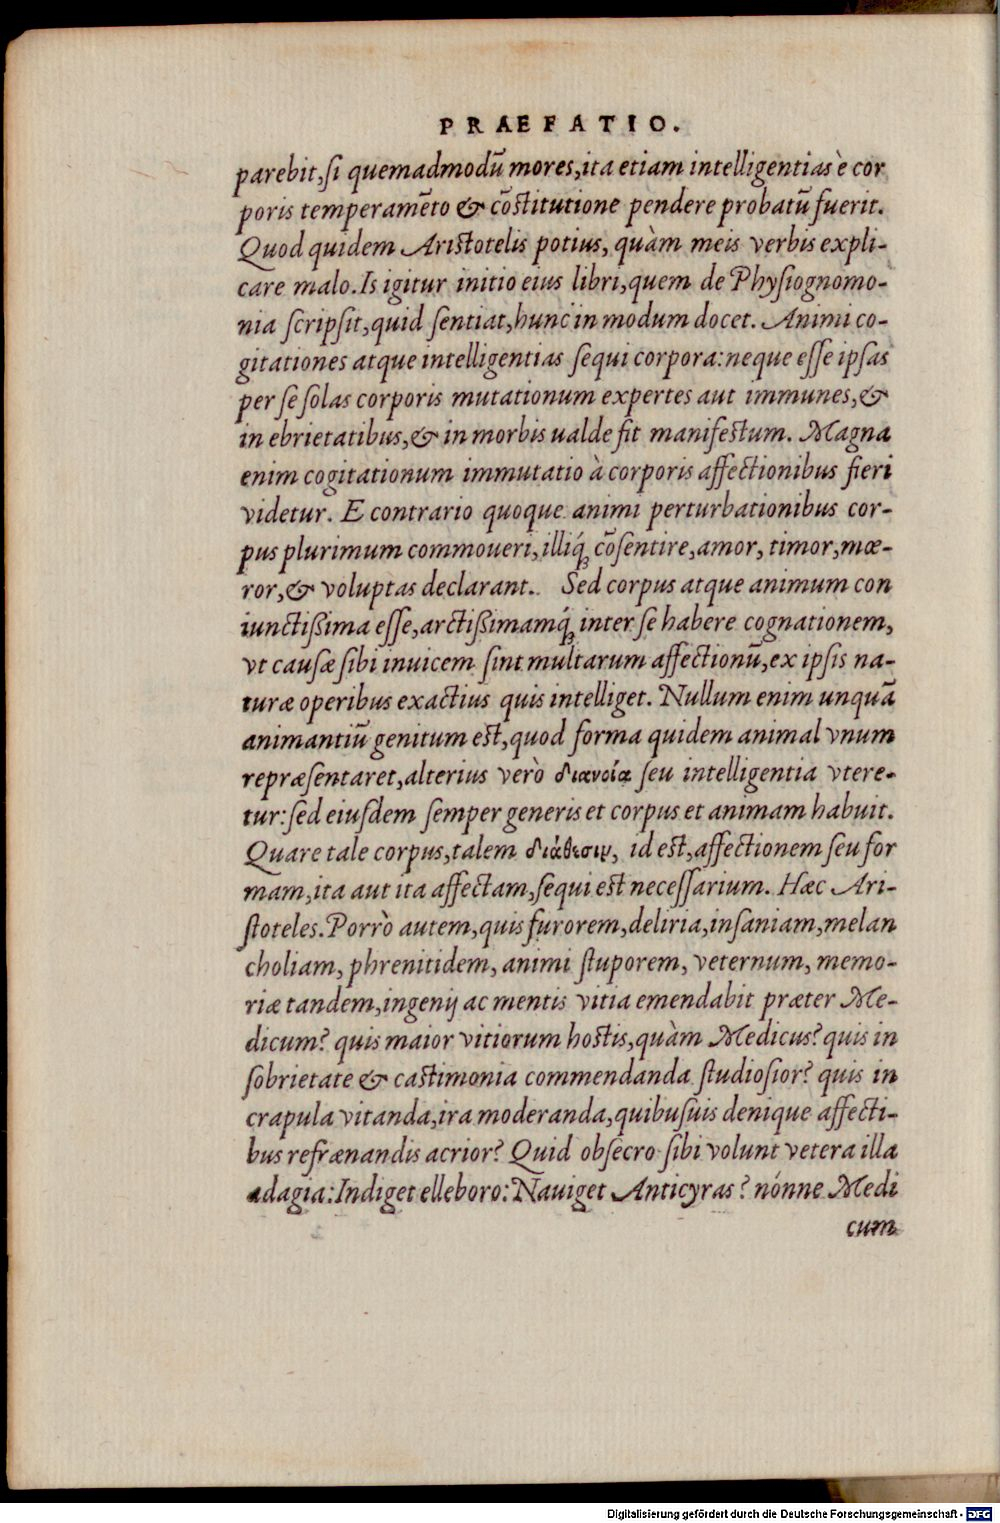 PRAEFATIO.
parebit, ſi quemadmodũ mores, ita etiam intelligentias è cor
poris temperamẽto & cõſtitutione pendere probatũ fuerit.
Quod quidem Ariſtotelis potius, quàm meis verbis expli-
care malo. Is igitur initio eius libri, quem de Phyſiognomo-
nia ſcripſit, quid ſentiat, hunc in modum docet. Animi co-
gitationes atque intelligentias ſequi corpora: neque eſſe ipſas
per ſe ſolas corporis mutationum expertes aut immunes, &
in ebrietatibus, & in morbis ualde fit manifeſtum. Magna
enim cogitationum immutatio à corporis affectionibus fieri
videtur. E contrario quoque animi perturbationibus cor-
pus plurimum commoueri, illiq́; cõſentire, amor, timor, mœ-
ror, & voluptas declarant. Sed corpus atque animum con
iunctißima eſſe, arctißimamq́; inter ſe habere cognationem,
vt cauſæ ſibi inuicem ſint multarum affectionũ, ex ipſis na-
turæ operibus exactius quis intelliget. Nullum enim unquã
animantiũ genitum eſt, quod forma quidem animal vnum
repræſentaret, alterius verò διανοία ſeu intelligentia vtere-
tur: ſed eiuſdem ſemper generis et corpus et animam habuit.
Quare tale corpus, talem διάθεσιν, id eſt, affectionem ſeu for
mam, ita aut ita affectam, ſequi eſt neceſſarium. Hæc Ari-
ſtoteles. Porrò autem, quis furorem, deliria, inſaniam, melan
choliam, phrenitidem, animi ſtuporem, veternum, memo-
riæ tandem, ingenij ac mentis vitia emendabit præter Me-
dicum? quis maior vitiorum hoſtis, quàm Medicus? quis in
ſobrietate & caſtimonia commendanda ſtudioſior? quis in
crapula vitanda, ira moderanda, quibuſuis denique affecti-
bus refrænandis acrior? Quid obſecro ſibi volunt vetera illa
adagia: Indiget elleboro: Nauiget Anticyras? nónne Medi
cum
Digitalisierung gefördert durch die Deutsche Forschungsgemeinschaft - DFG